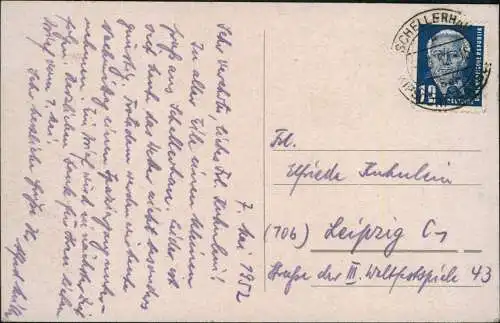 7. Mai 1952
Sehr verehrtes, liebes Frl. Kuhnlein!
In aller Eile einen kleinen
Gruß aus Schellerhau. Leider ist
das Wetter nicht besonders
günstig. Trotzdem werden wir heute
nachmittag einen Spaziergang unter-
nehmen. Ein Brief wird in nächster Zeit
folgen. Herzlichen Dank für Ihren lieben
Brief vom 7. Mai!
Sehr herzliche Grüße
SCHELLERHAU
12
DEUTSCHE DEMOKRATISCHE REPUBLIK
Frl.
Elfriede Kuhnlein
(10b) Leipzig C1
Straße der III. Weltfestspiele 43